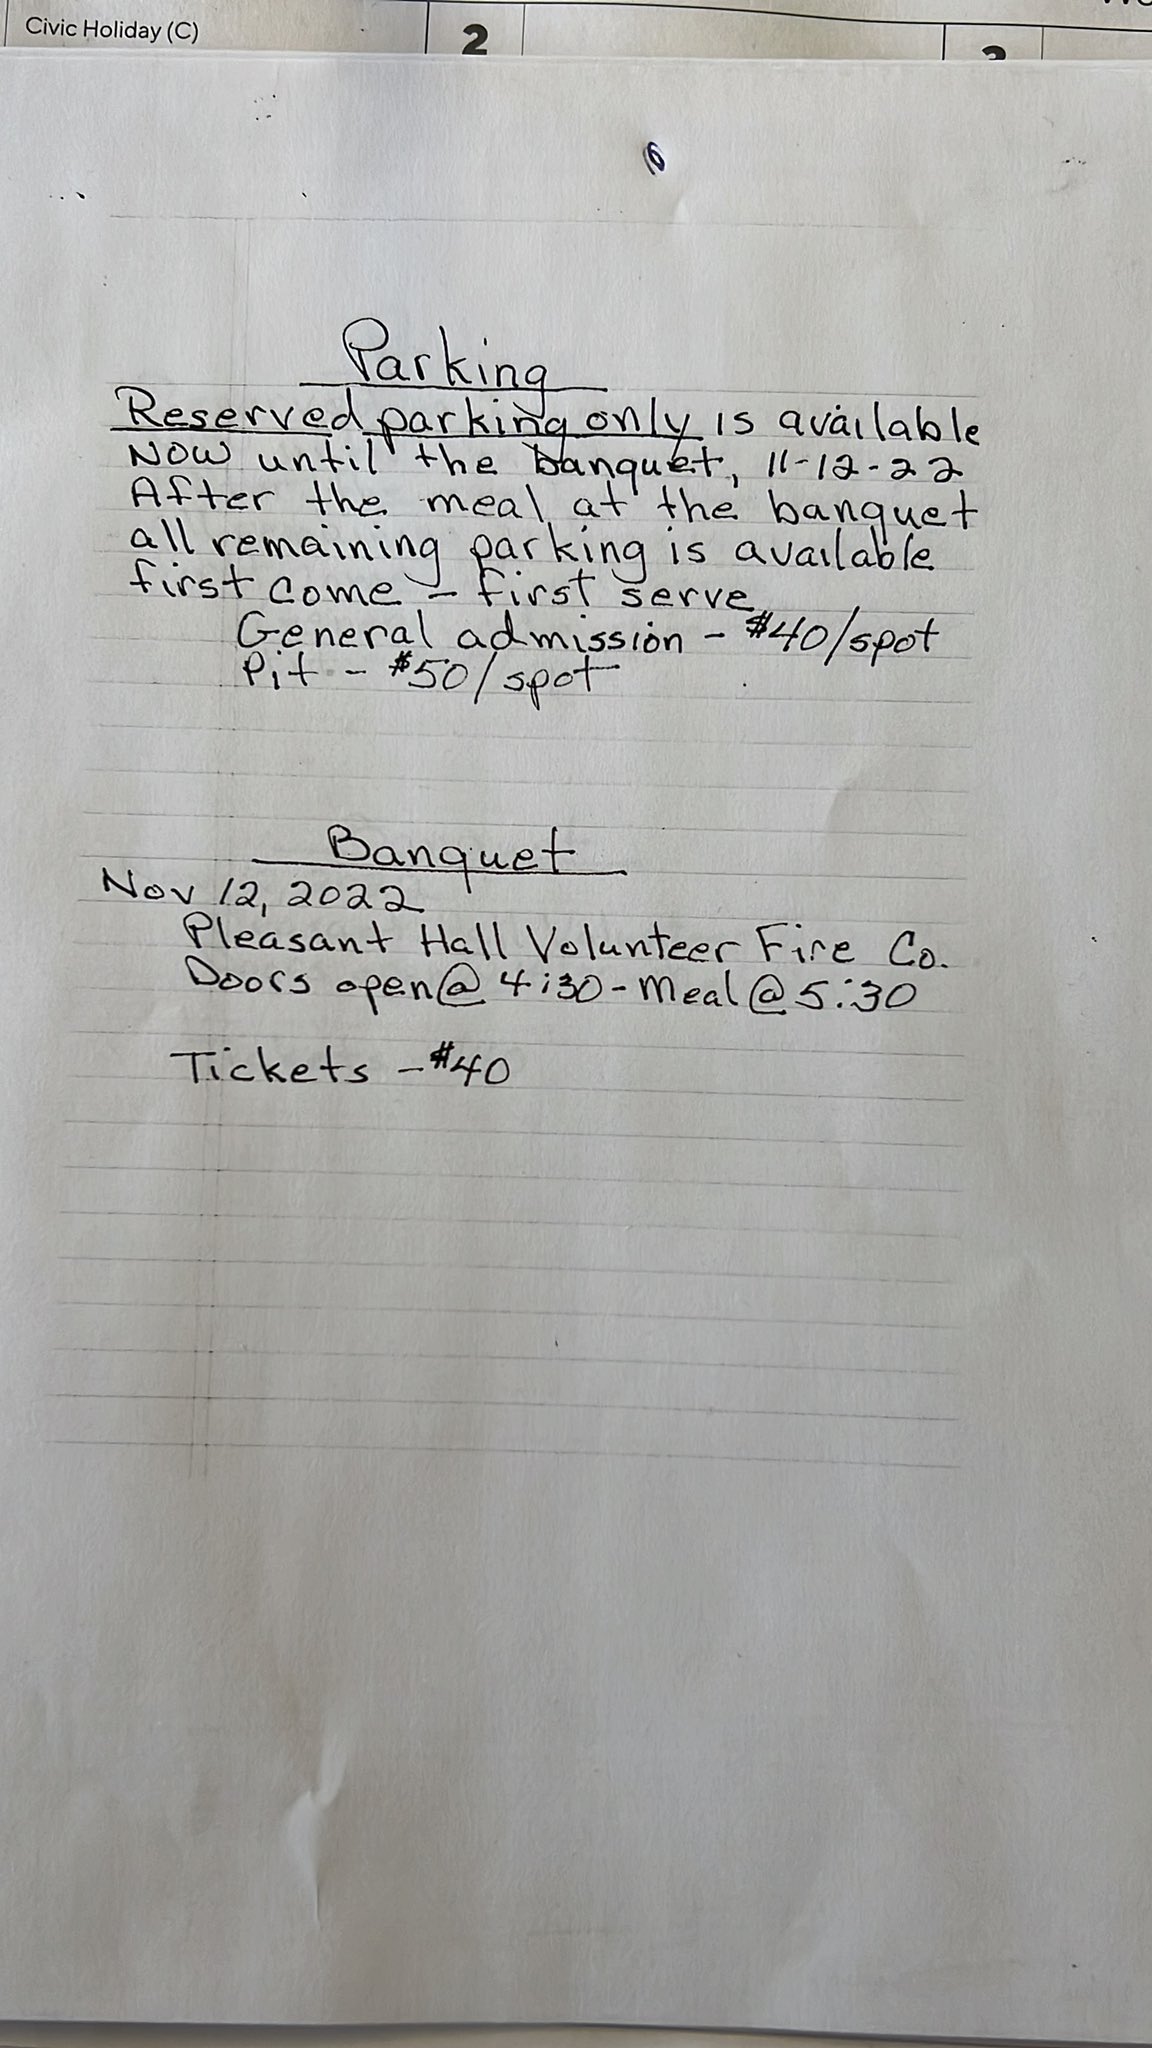 Civic Holiday (C)
2
Parking
Reserved parking only is available
Now until the banquet, 11-12-22
After the meal at the banquet
all remaining parking is available
first come - first serve
General admission - $40/spot
Pit - $50/spot
Banquet
Nov 12, 2022
Pleasant Hall Volunteer Fire Co.
Doors open @ 4:30 - Meal @ 5:30
Tickets - $40